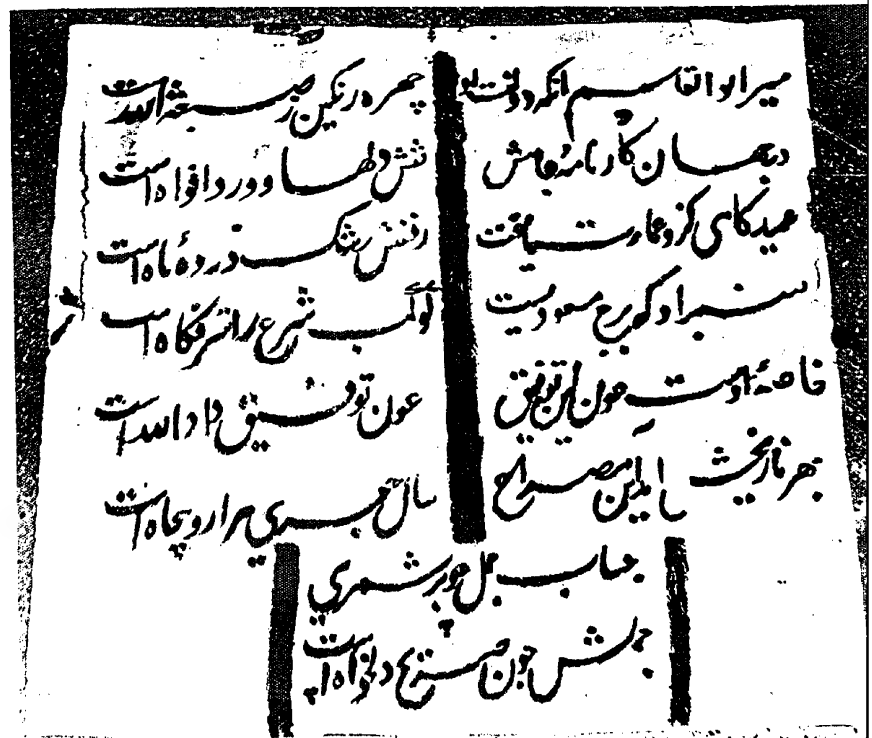 میر ابو القاسم انکه دولت او چهره رنگین ز صبغة الله است
در جهان کارنامهٔ نقش دلها و ورد افواه است
عید کاهی کزو عمارت یافت رشک ذروهٔ ماه است
منبر او که برج مسعودیست کوکب شرع را شرفکاه است
خاصهٔ اوست عون این توفیق عون توفیق داد الله است
بهر تاریخش آمد این مصراع سال هجری هزار و پنجاه است
بحساب جمل چو برشمری
جملش چون صریح دلخواه است